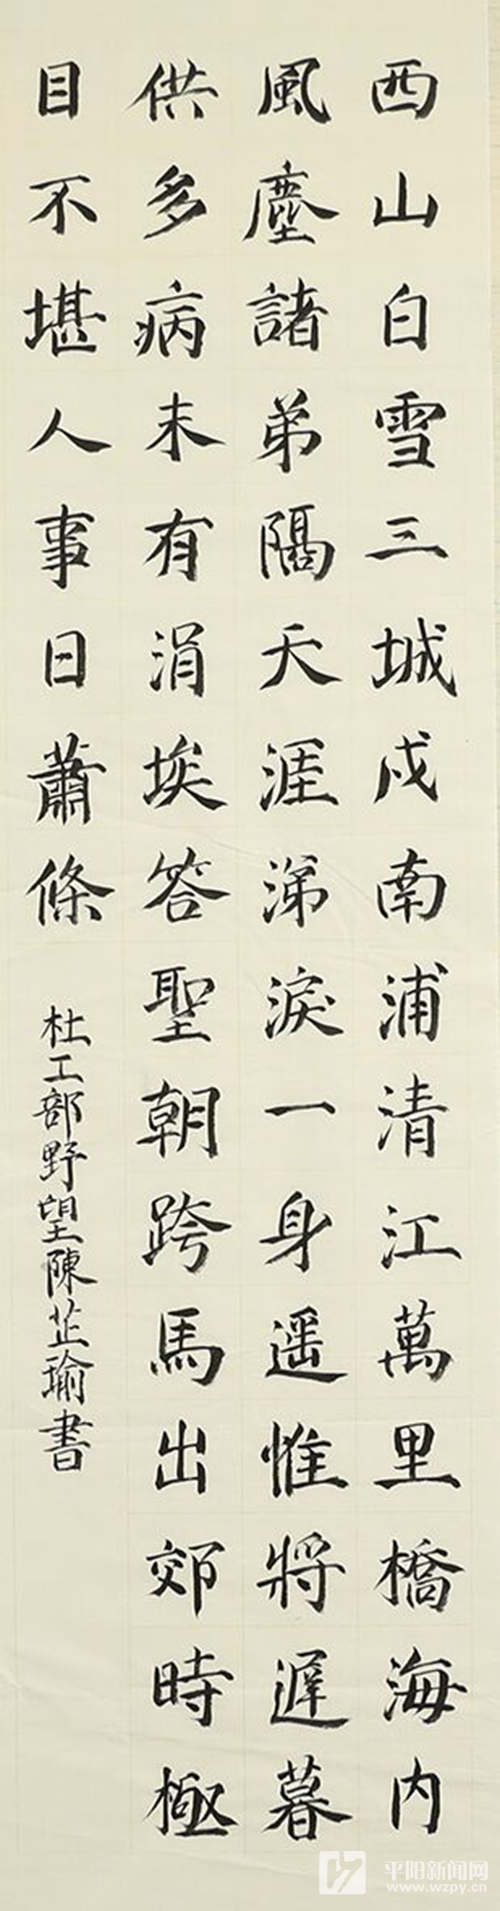 西山白雪三城戍南浦清江萬里橋海内
風塵諸弟隔天涯涕淚一身遥惟將遲暮
供多病未有涓埃答聖朝跨馬出郊時極
目不堪人事日蕭條
杜工部野望陳芷瑜書
平阳新闻网
www.wzpy.cn